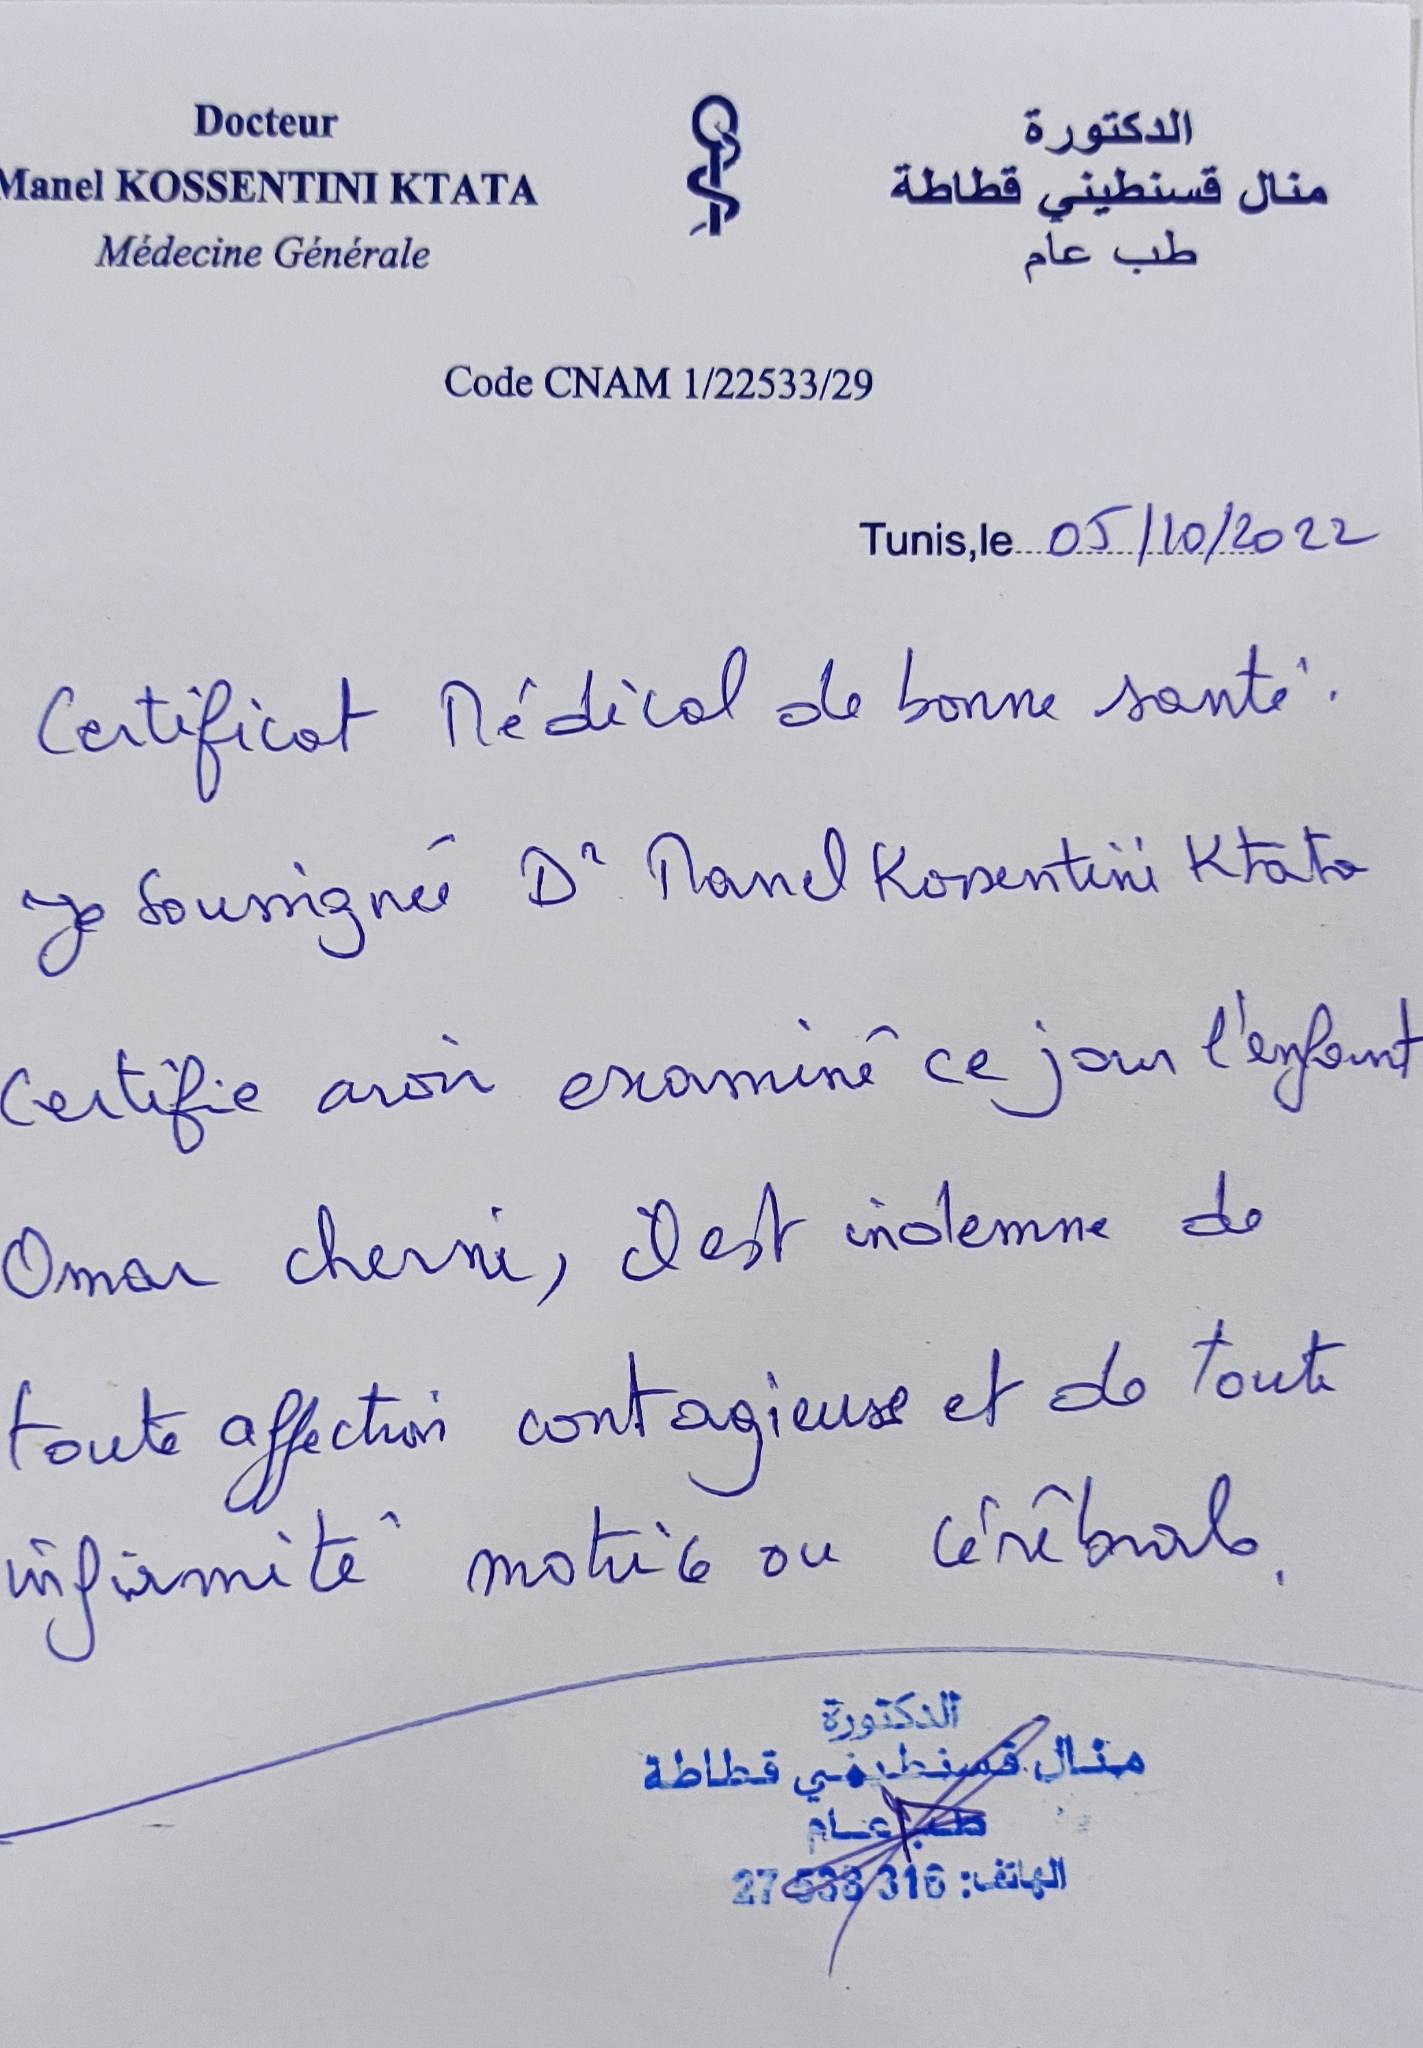 Docteur
Manel KOSSENTINI KTATA
Médecine Générale
الدكتورة
منال قسنطيني قطاطة
طب عام
Code CNAM 1/22533/29
Tunis,le 05/10/2022
Certificat Médical de bonne santé.
Je soussignée Dr Manel Kossentini Ktata
certifie avoir examiné ce jour l'enfant
Omar cherni, il est indemne de
toute affection contagieuse et de toute
infirmité motrice ou cérébrale.
الدكتورة
منال قسنطيني قطاطة
طب عام
الهاتف: 27 533 316